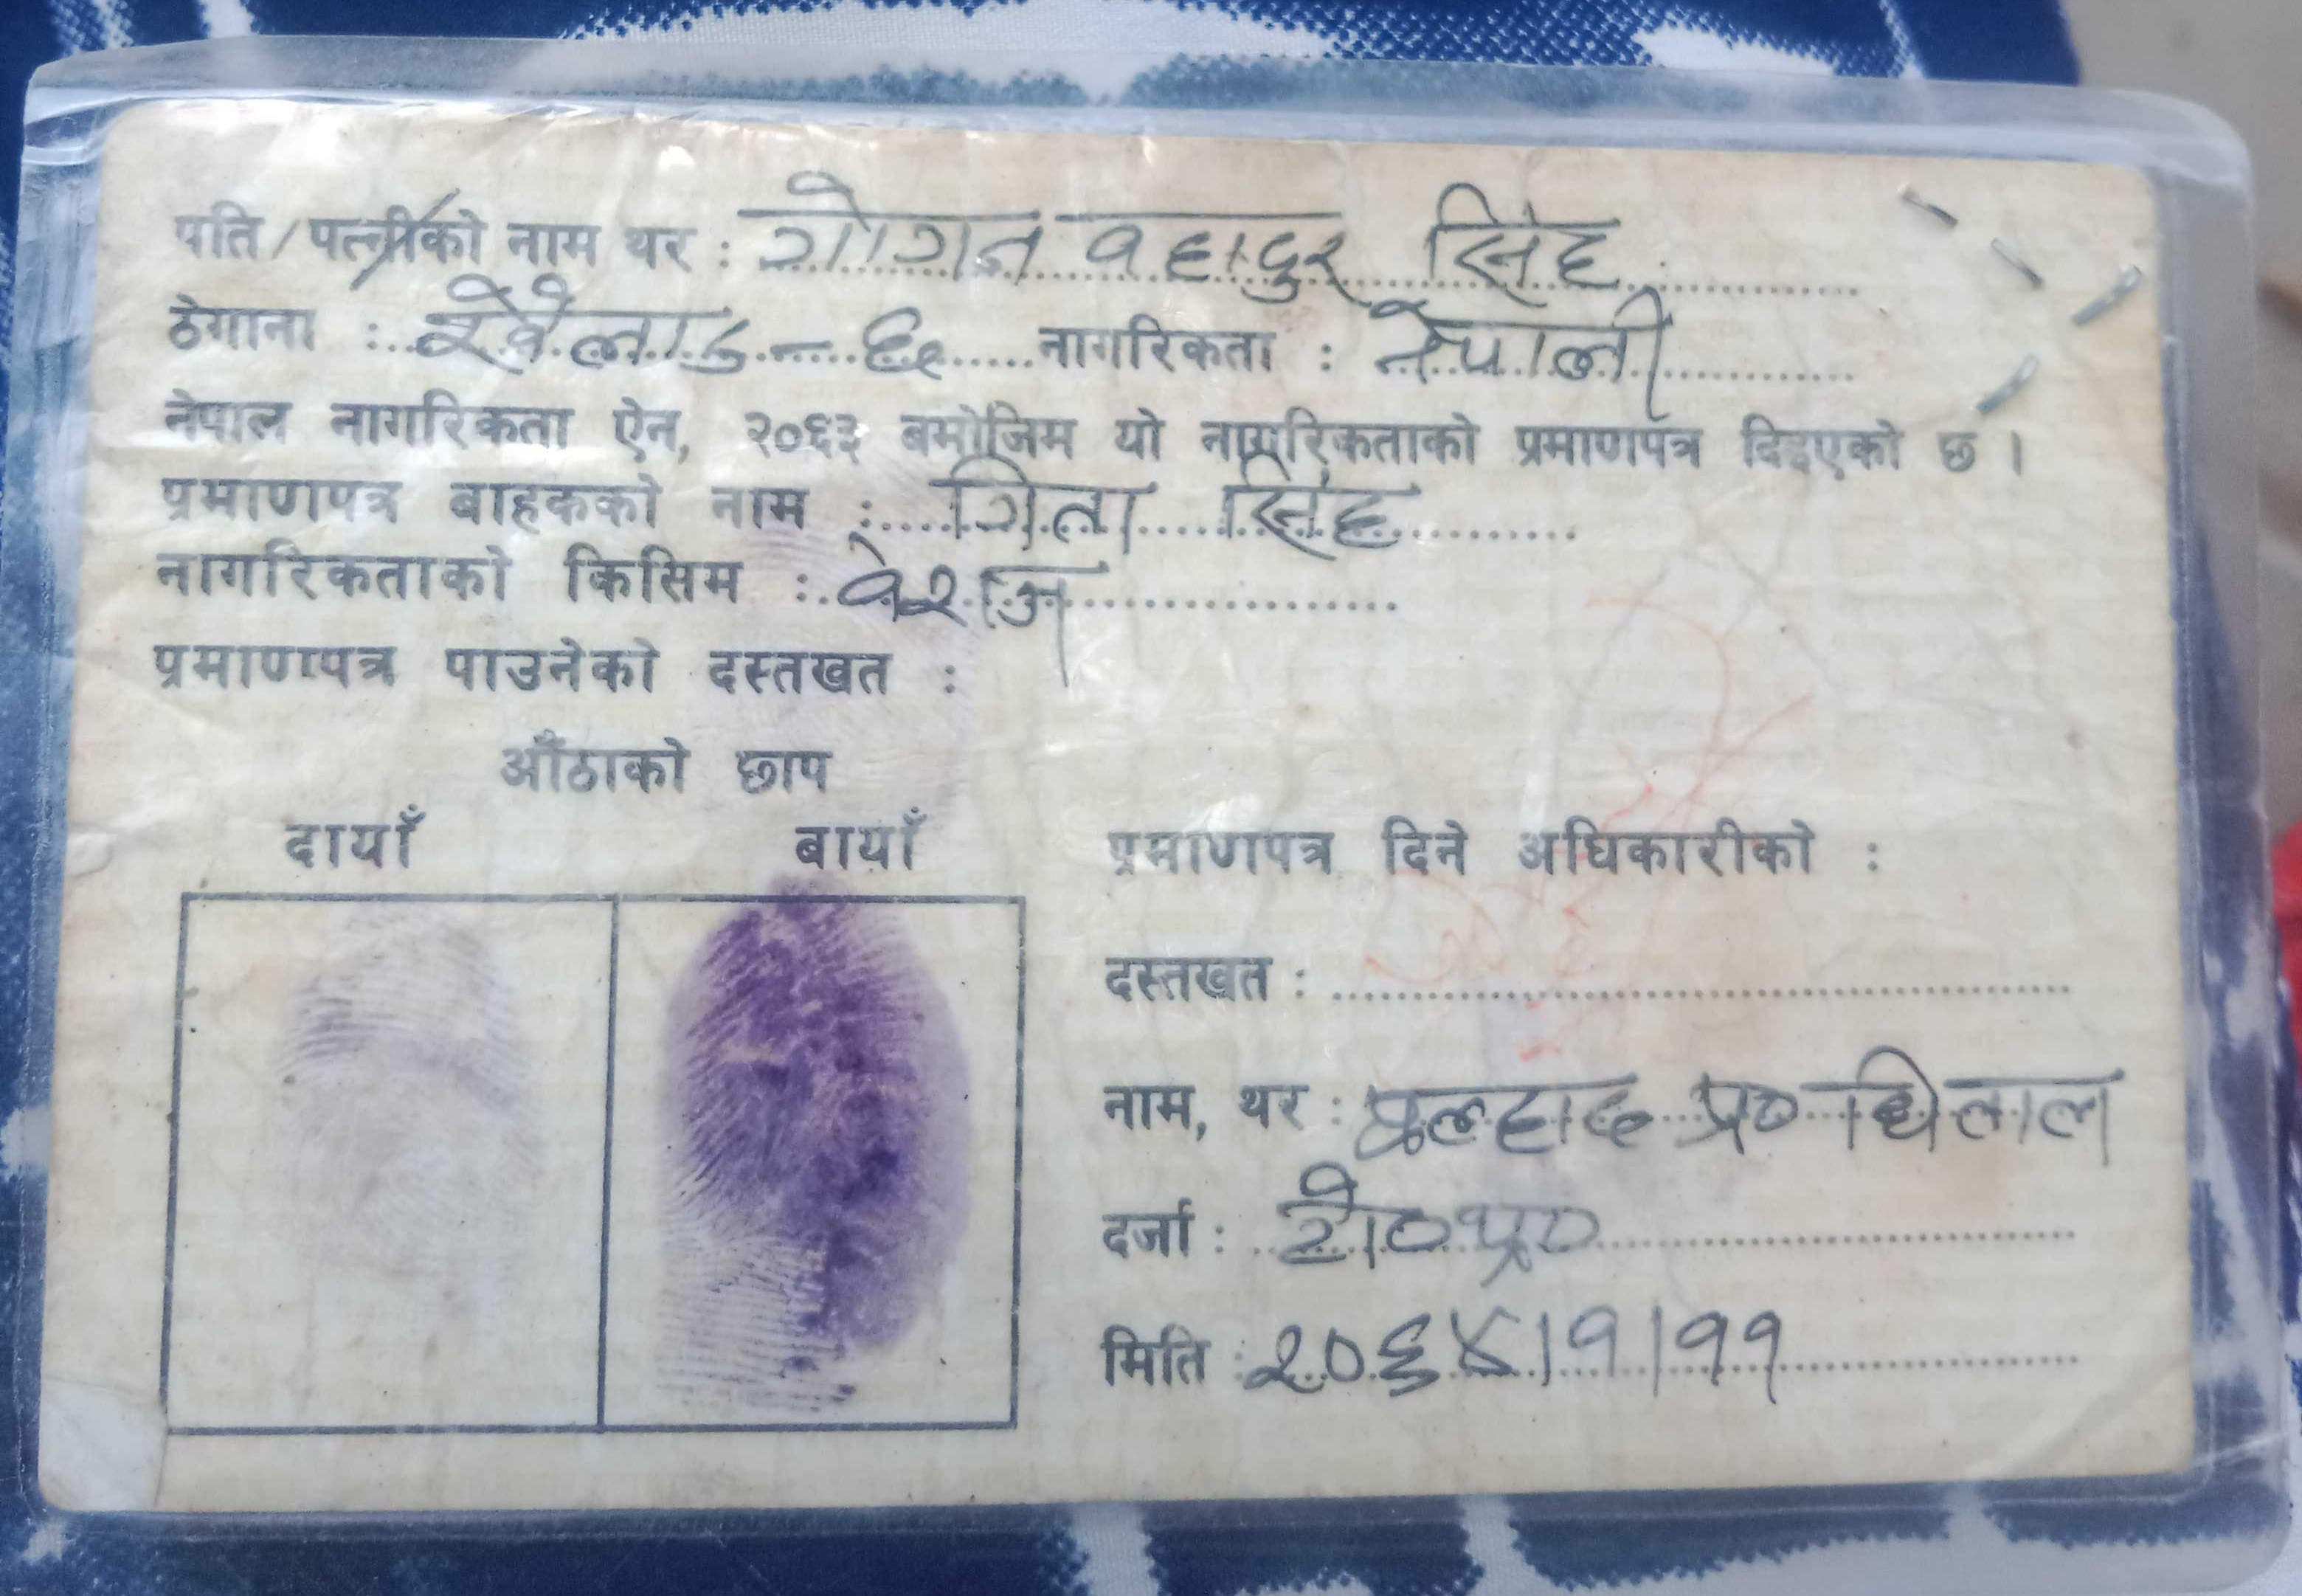 पति/पत्नीको नाम थर : गोगन वहादुर सिंह
ठेगाना : नागरिकता : नेपाली
नेपाल नागरिकता ऐन, २०६३ बमोजिम यो नागरिकताको प्रमाणपत्र दिइएको छ ।
प्रमाणपत्र बाहकको नाम : गिता सिंह
नागरिकताको किसिम : वंशज
प्रमाणपत्र पाउनेको दस्तखत :
औंठाको छाप
दायाँ बायाँ
प्रमाणपत्र दिने अधिकारीको :
दस्तखत :
नाम, थर : प्रल्हाद प्र० धिताल
दर्जा :
मिति : २०६४।१।११